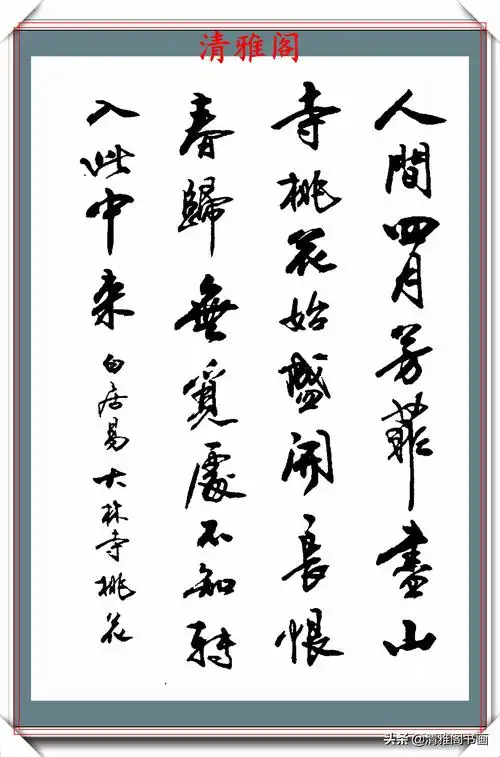 清雅阁
人間四月芳菲盡山
寺桃花始盛開長恨
春歸無覓處不知轉
入此中来 白居易大林寺桃花
头条@清雅阁书画